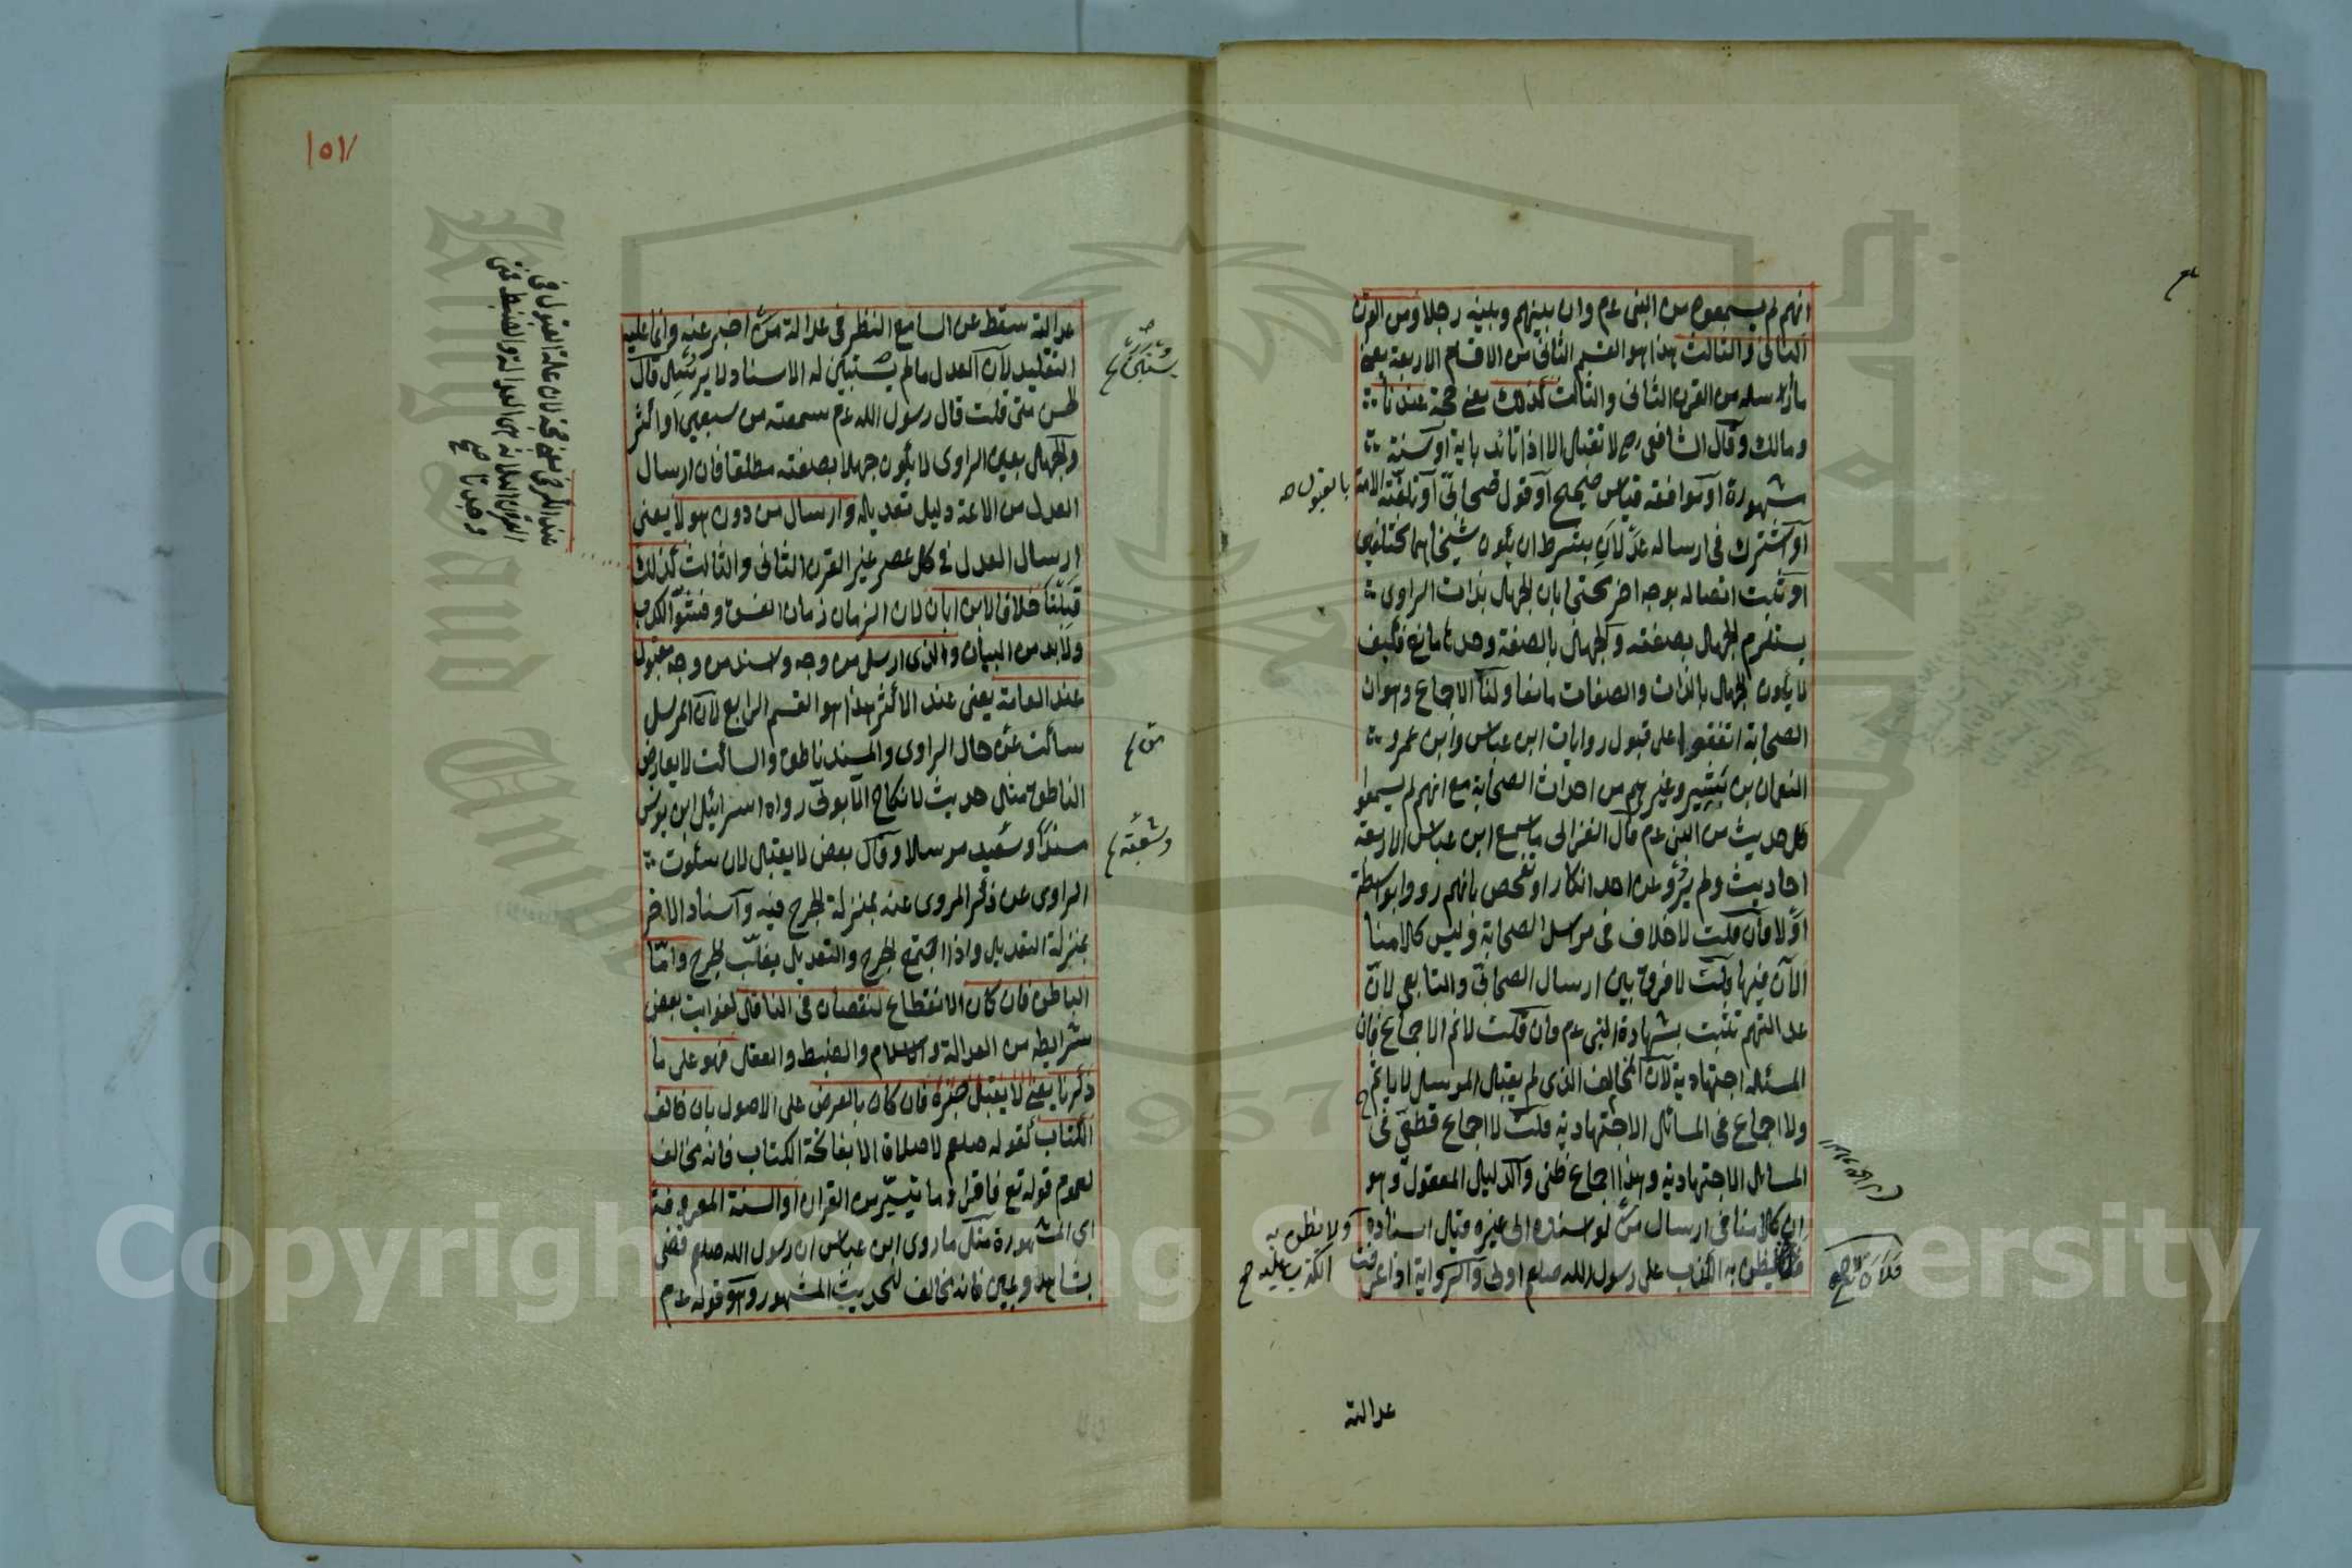 انهم لم يسمعوه من النبى عم وان بينهم وبينه رجلا ومن القرن
الثانى والثالث هذا هو القسم الثانى من الاقسام الاربعة يعنى
ما ارسله من القرن الثانى والثالث كذلك يعنى حجة عندنا
ومالك وقال الشافعى رح لا تقبل الا اذا تائد باية او سنة
مشهورة او موافقة قياس صحيح او قول صحابى او تلقته الامة بالقبول صح
او اشترك فى ارساله عدلان بشرط ان يكون شيخاهما مختلفين
او ثبت اتصاله بوجه اخر محتجا بان الجهل بذات الراوى
يستلزم الجهل بصفته والجهل بالصفة وحدها مانع فكيف
لا يكون الجهل بالذات والصفات مانعا ولنا الاجماع وهو ان
الصحابة اتفقوا على قبول روايات ابن عباس وابن عمر و
النعمان بن بشير وغيرهم من احداث الصحابة مع انهم لم يسمعوا
كل حديث من النبى عم قال الغزالى ما سمع ابن عباس الا اربعة
احاديث ولم يرو عن احد انكار او تفحص بانهم رووا بواسطة
او لا فان قلت لا خلاف فى مراسل الصحابة وليس كلامنا
الآن فيها قلت لا فرق بين ارسال الصحابى والتابعى لان
عدالتهم تثبت بشهادة النبى عم فان قلت لا نم الاجماع فان
المسئلة اجتهادية لان المخالف الذى لم يقبل المرسل لا ياثم
ولا اجماع فى المسائل الاجتهادية قلت لا اجماع قطعى فى
المسائل الاجتهادية وهذا اجماع ظنى والدليل المعقول وهو
ان كلامنا فى ارسال من لو اسنده الى غيره قبل اسناده ولا يظن به
الكذب عليه صح
فلان لا يظن به الكذب على رسول الله صلعم اولى والرواية اذا عرفت
عدالته
١٥٧
عدالته سقط عن السامع النظر فى عدالة من اخبر عنه وانما عليه
التقليد لان العدل ما لم يستبين له الاسناد لا يرسل قال
الحسن متى قلت قال رسول الله عم سمعته من سبعين او اكثر
والجهل بعين الراوى لا يكون جهلا بصفته مطلقا فان ارسال
العدل من الائمة دليل تعديله وارسال من دون هولا يعنى
ارسال العدل فى كل عصر غير القرن الثانى والثالث كذلك
خلافا لابن ابان لان الزمان زمان الفسق وفشو الكذب
ولا بد من البيان والذى ارسل من وجه واسند من وجه مقبول
عند العامة يعنى عند الاكثر هذا هو القسم الرابع لان المرسل
ساكت عن حال الراوى والمسند ناطق والساكت لا يعارض
الناطق مثل حديث لا نكاح الا بولى رواه اسرائيل ابن يونس
مسندا وشعبة مرسلا وقال بعض لا يقبل لان سكوت
الراوى عن ذكر المروى عنه بمنزلة الجرح فيه واسناد الاخر
بمنزلة التعديل واذا اجتمع الجرح والتعديل يغلب الجرح واما
الباطن فان كان الانقطاع لنقصان فى الناقل لفوات بعض
شرايطه من العدالة والاسلام والضبط والعقل فهو على ما
ذكرنا يعنى لا يقبل خبره فان كان بالعرض على الاصول بان خالف
الكتاب كقوله صلعم لا صلاة الا بفاتحة الكتاب فانه مخالف
لعموم قوله تع فاقرؤا ما تيسر من القران او السنة المعروفة
اى المشهورة مثل ما روى ابن عباس ان رسول الله صلعم قضى
بشاهد ويمين فانه مخالف للحديث المشهور وهو قوله عم
عند الكرخى يعنى حجة لان علة القبول فى
القرون الثلاثة هى العدالة والضبط فمتى
وجدتا صح
وشعبة
Copyright © King Saud University
King Saud University
1957